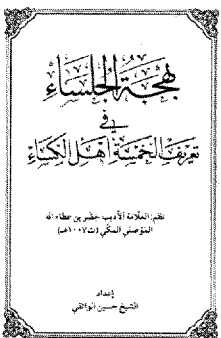 بهجة الجلساء
في
تعريف الخمسة أهل الكساء
نظم: العلامة الأديب خضر بن عطاء الله
الموصلي المكي (ت ١٠٠٧هـ)
إعداد
الشيخ حسين الواثقي